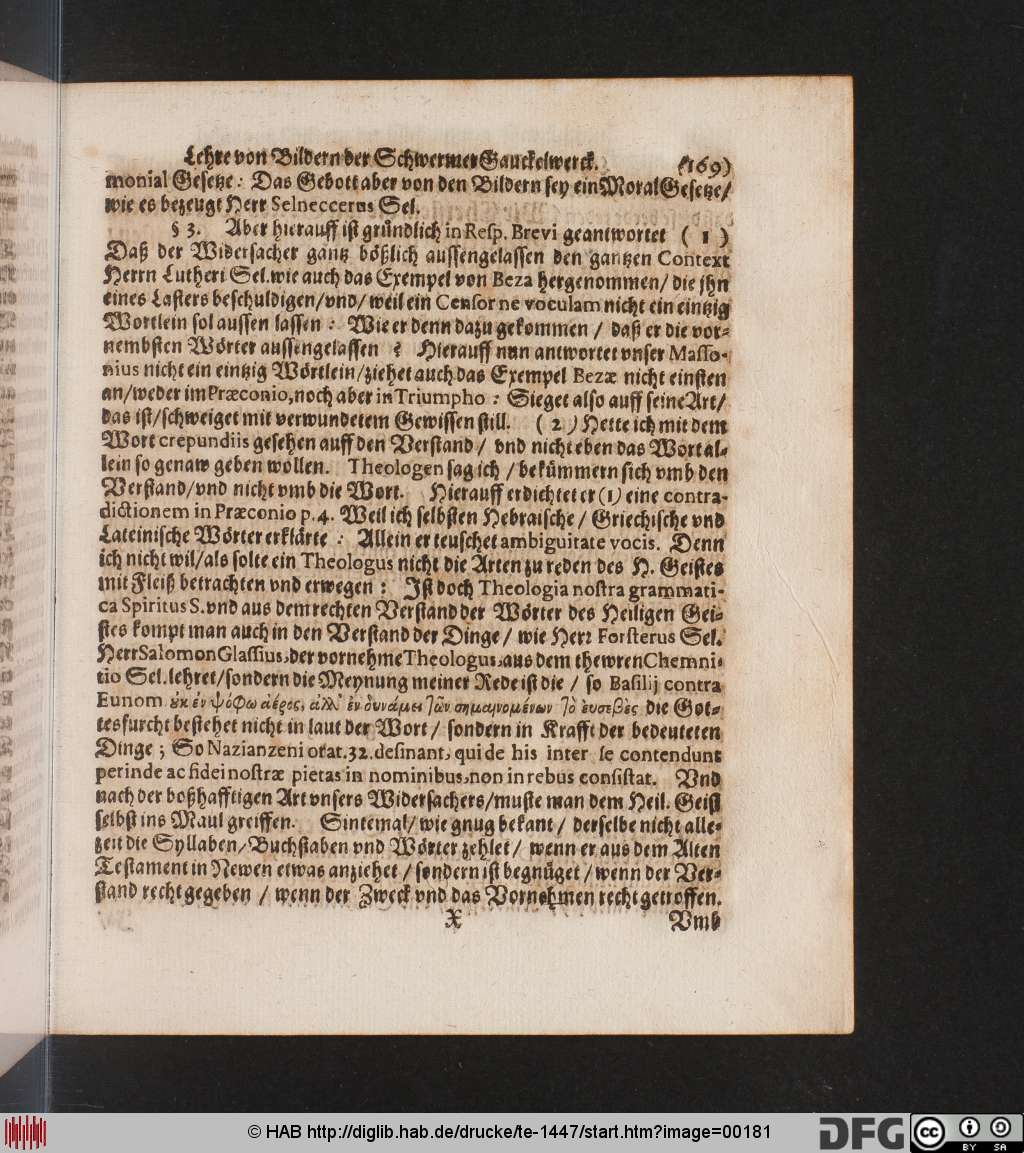 Lehre von Bildern der Schwermer Gauckelwerck. (169)
monial Gesetze: Das Gebott aber von den Bildern sey ein Moral Gesetze/
wie es bezeugt Herr Selneccerus Sel.
§ 3. Aber hierauff ist gründlich in Resp. Brevi geantwortet (1)
Daß der Widersacher gantz bößlich aussengelassen den gantzen Context
Herrn Lutheri Sel. wie auch das Exempel von Beza hergenommen/ die jhn
eines Lasters beschuldigen/vnd/ weil ein Censor ne voculam nicht ein eintzig
Wortlein sol aussen lassen: Wie er denn dazu gekommen/ daß er die vor-
nembsten Wörter aussengelassen? Hierauff nun antwortet vnser Masso-
nius nicht ein eintzig Wörtlein/ziehet auch das Exempel Bezæ nicht einsten
an/weder im Præconio, noch aber in Triumpho: Sieget also auff seine Art/
das ist/schweiget mit verwundetem Gewissen still. (2) Hette ich mit dem
Wort crepundiis gesehen auff den Verstand/ vnd nicht eben das Wort al-
lein so genaw geben wollen. Theologen sag ich/bekümmern sich vmb den
Verstand/vnd nicht vmb die Wort. Hierauff erdichtet er (1) eine contra-
dictionem in Præconio p. 4. Weil ich selbsten Hebraische/ Griechische vnd
Lateinische Wörter erklärte: Allein er teuschet ambiguitate vocis. Denn
ich nicht wil/als solte ein Theologus nicht die Arten zu reden des H. Geistes
mit Fleiß betrachten vnd erwegen: Ist doch Theologia nostra grammati-
ca Spiritus S. vnd aus dem rechten Verstand der Wörter des Heiligen Gei-
stes kompt man auch in den Verstand der Dinge/ wie Herr Forsterus Sel.
Herr Salomon Glassius, der vornehme Theologus, aus dem thewren Chemni-
tio Sel. lehret/sondern die Meynung meiner Rede ist die/ so Basilij contra
Eunom. οὐκ ἐν ψόφω ἀέρος, ἀλλ' ἐν δυνάμει τῶν σημαινομένων τὸ ἐυσεβὲς die Got-
tesfurcht bestehet nicht in laut der Wort/ sondern in Krafft der bedeuteten
Dinge; So Nazianzeni orat. 32. desinant, qui de his inter se contendunt
perinde ac fidei nostræ pietas in nominibus, non in rebus consistat. Vnd
nach der boßhafftigen Art vnsers Widersachers/muste man dem Heil. Geist
selbst ins Maul greiffen. Sintemal/ wie gnug bekant/ derselbe nicht alle-
zeit die Syllaben/Buchstaben vnd Wörter zehlet/ wenn er aus dem Alten
Testament in Newen etwas anziehet/sondern ist begnüget/wenn der Ver-
stand recht gegeben/ wenn der Zweck vnd das Vornehmen recht getroffen.
X Vmb
© HAB http://diglib.hab.de/drucke/te-1447/start.htm?image=00181
DFG
cc BY SA